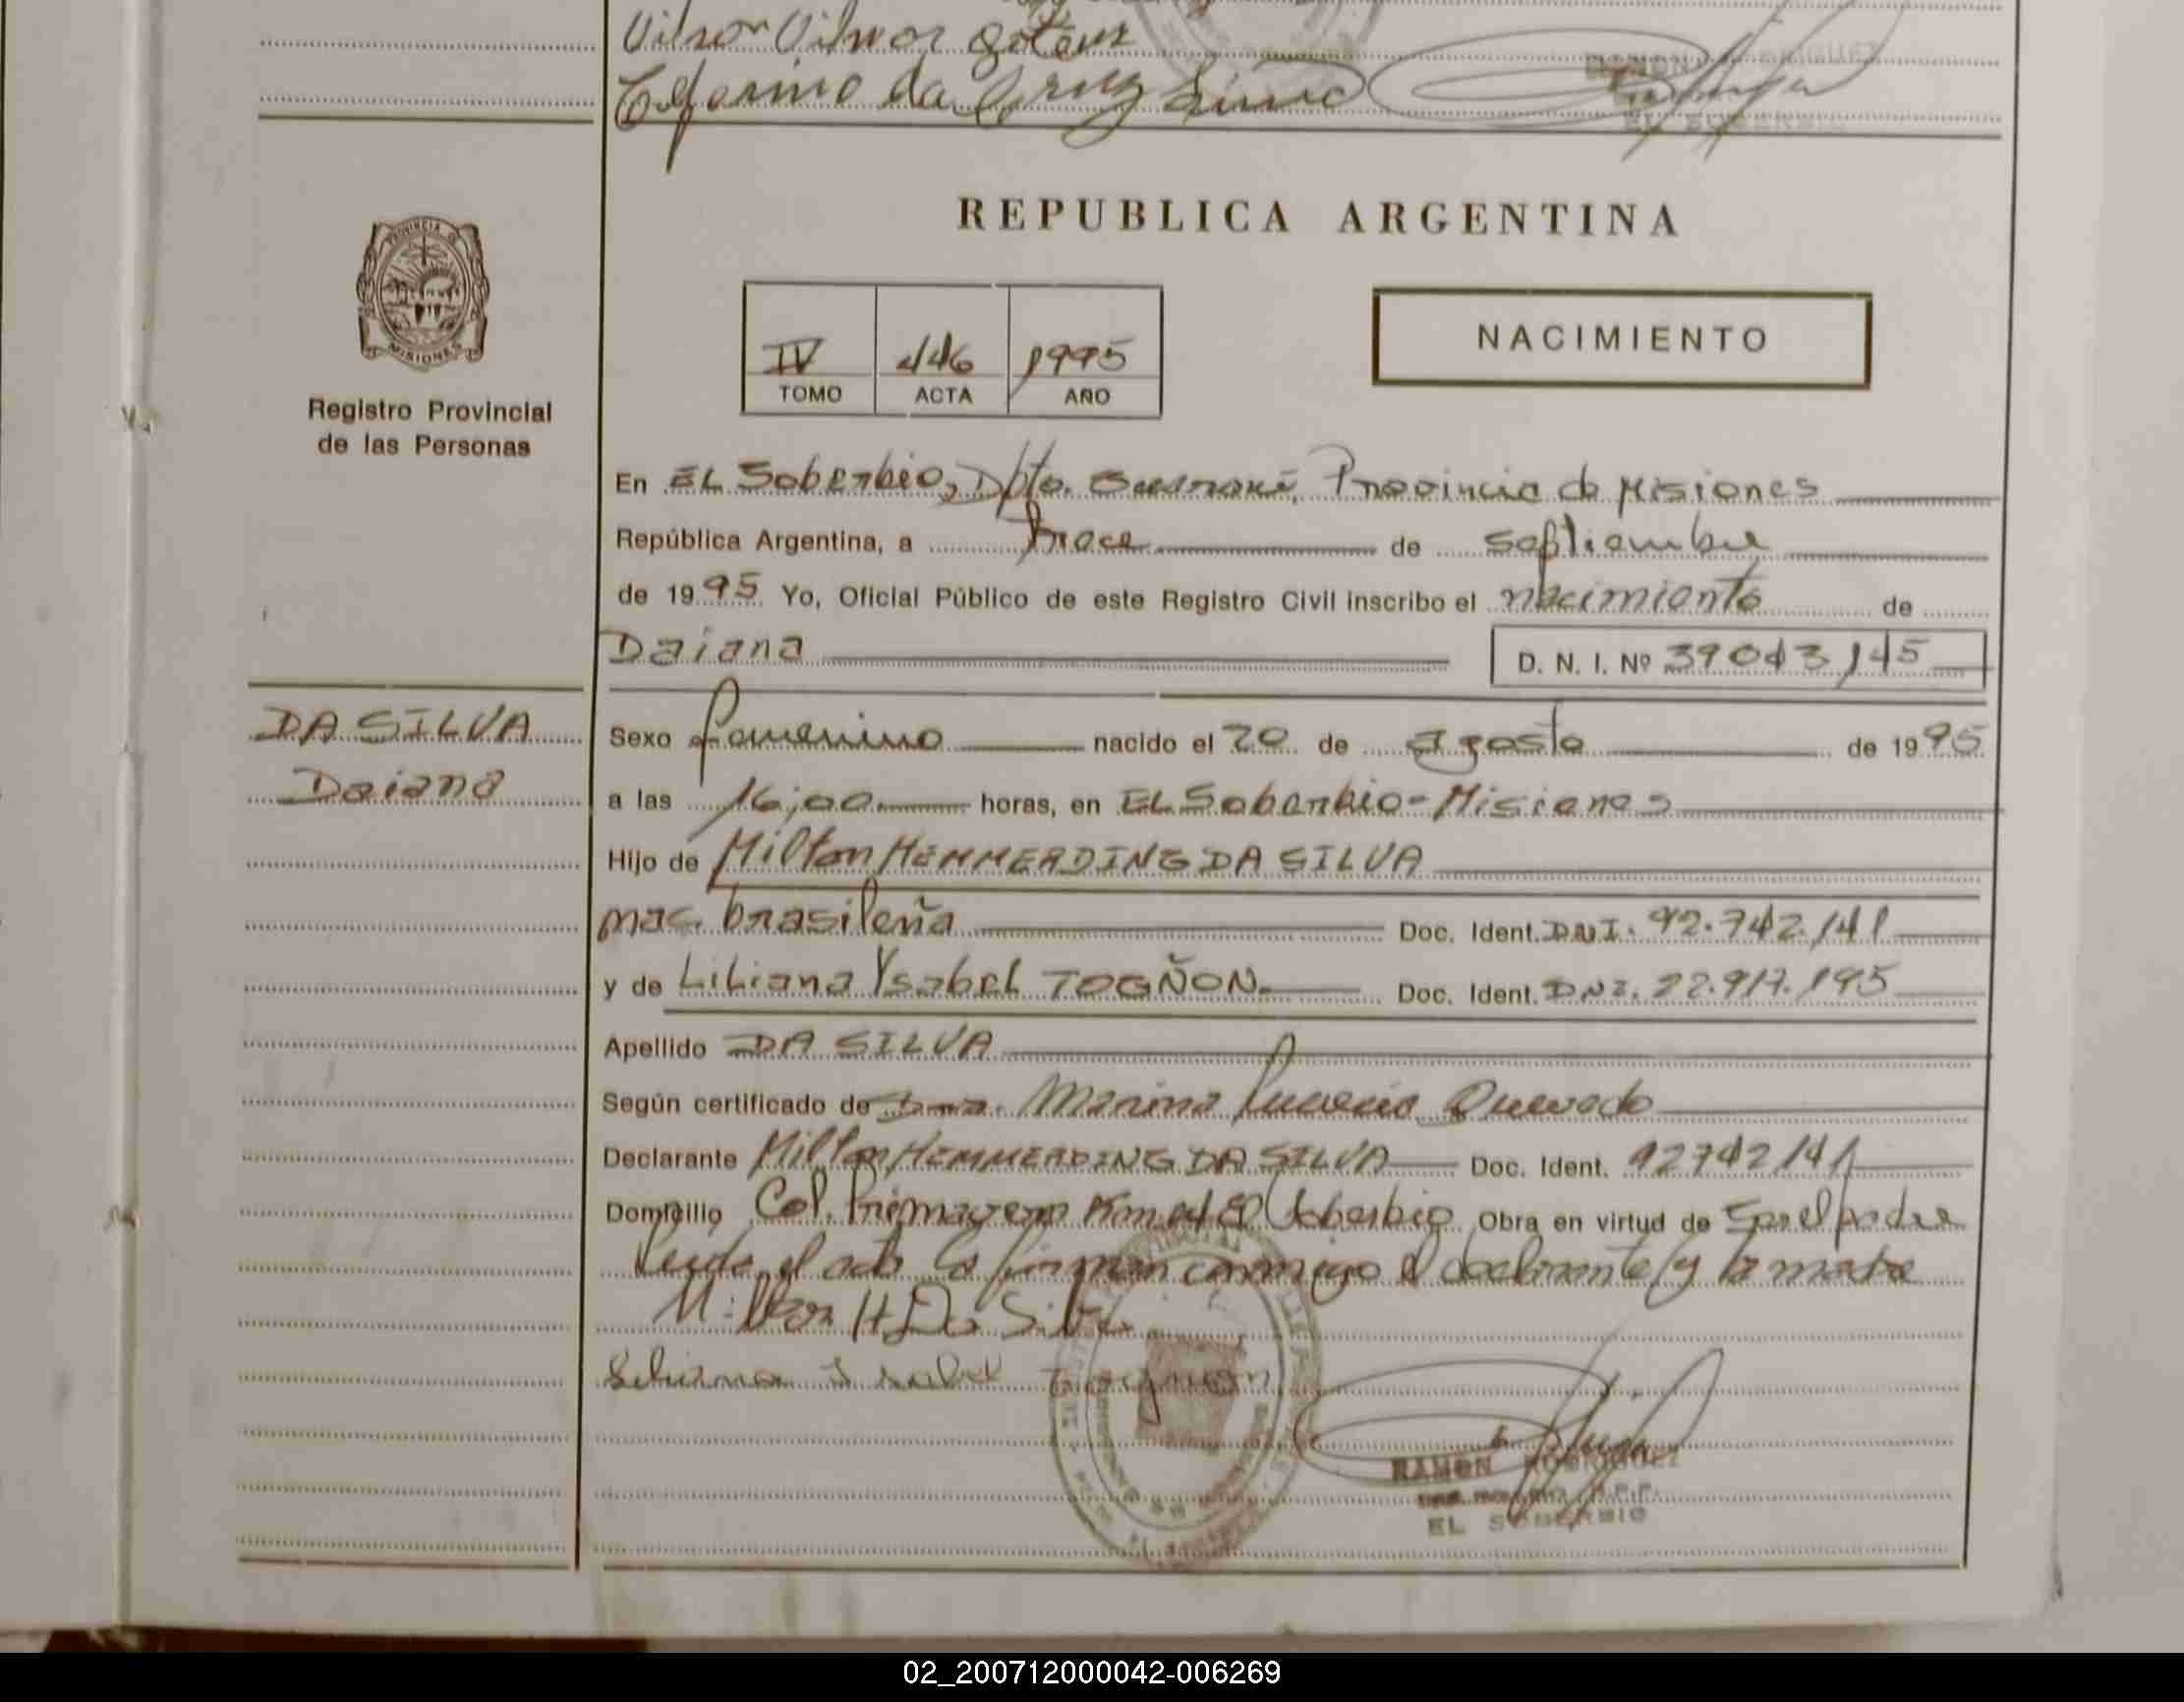 Vilson Vilmar
da Cruz
REPUBLICA ARGENTINA
PROVINCIA DE
MISIONES
Registro Provincial
de las Personas
IV 446 1995
TOMO ACTA AÑO
NACIMIENTO
En EL Soberbio, Dpto. Guaraní, Provincia de Misiones
República Argentina, a trece de septiembre
de 1995 Yo, Oficial Público de este Registro Civil inscribo el nacimiento de
Daiana D. N. I. Nº 39043145
DA SILVA
Daiana
Sexo femenino nacido el 20 de agosto de 1995
a las 16,00 horas, en EL Soberbio - Misiones
Hijo de Milton HEMMERDING DA SILVA
nac. brasileña Doc. Ident. DNI. 92.742.141
y de Liliana Ysabel TOGÑON. Doc. Ident. DNI. 22.917.195
Apellido DA SILVA
Según certificado de Dra. Marina Quevedo
Declarante Milton HEMMERDING DA SILVA Doc. Ident. 92742141
Domicilio Col. Primavera Km El Soberbio Obra en virtud de Ser el padre
Leida el acta la firman conmigo el declarante y la madre
Milton H Da Silva
Liliana Isabel Tognon
RAMON RODRIGUEZ
EL SOBERBIO
02_200712000042-006269